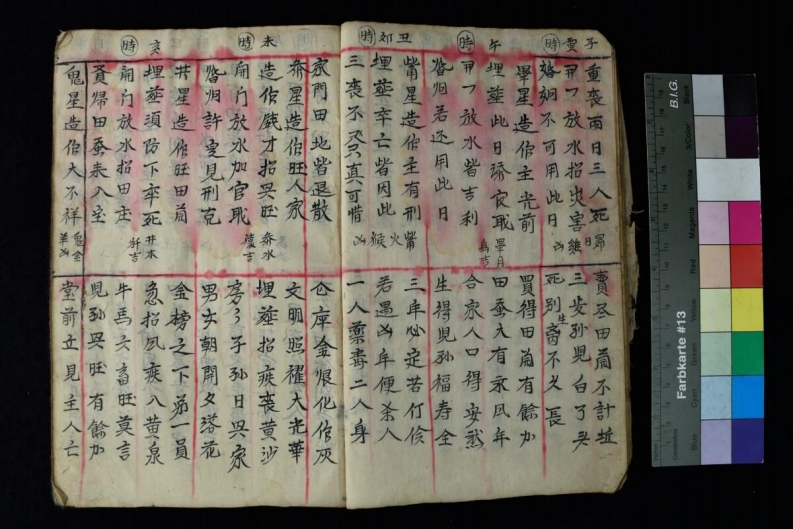 子
時
午
時
丑
卯
時
未
時
亥
時
重喪兩日三人死
放水招災害
婚姻不可用此日
畢星造作主光前
埋葬此日添官职
放水皆吉利
婚姻若还用此日
觜星造作主有刑
埋葬卒亡皆因此
三喪不只真可惜
家門田地皆退散
参星造作旺人家
造作 才招兴旺
開门放水加官职
婚姻許定见刑克
井星造作旺田蚕
埋葬須防 卒死
開门放水招田庄
寡婦田蚕来入宅
鬼星造作大不祥
畢月
烏吉
觜火
猴凶
参水
猿吉
井木
犴吉
鬼金
羊凶
賣尽田蚕不計
三岁孙児白了头
死别生离不久長
買得田蚕有餘加
田蚕大有永風年
合家人口得安然
生得児孙福寿全
三年必定苦伶仃
若遇凶年便杀人
一人藥毒二人身
仓库金银化作灰
文明照耀大光華
埋葬招疾喪黄沙
房々子孙日兴家
男女朝開夕落花
金榜之下第一員
急招風疾入黄泉
牛馬六畜旺莫言
児孙兴旺有餘加
堂前立見主人亡
B.I.G.
Farbkarte #13
Black
3/Color
White
Magenta
Red
Yellow
Green
Cyan
Blue